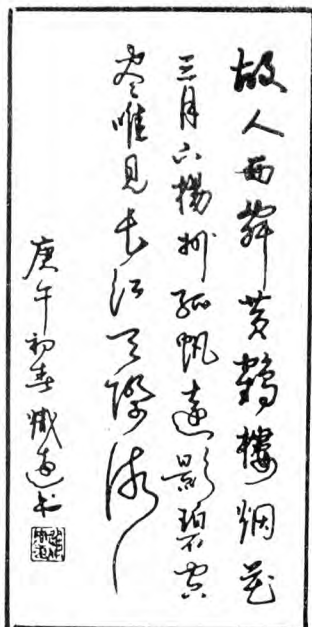 故人西辞黄鹤楼烟花
三月下扬州孤帆远影碧空
尽唯见长江天际流
庚午初春书